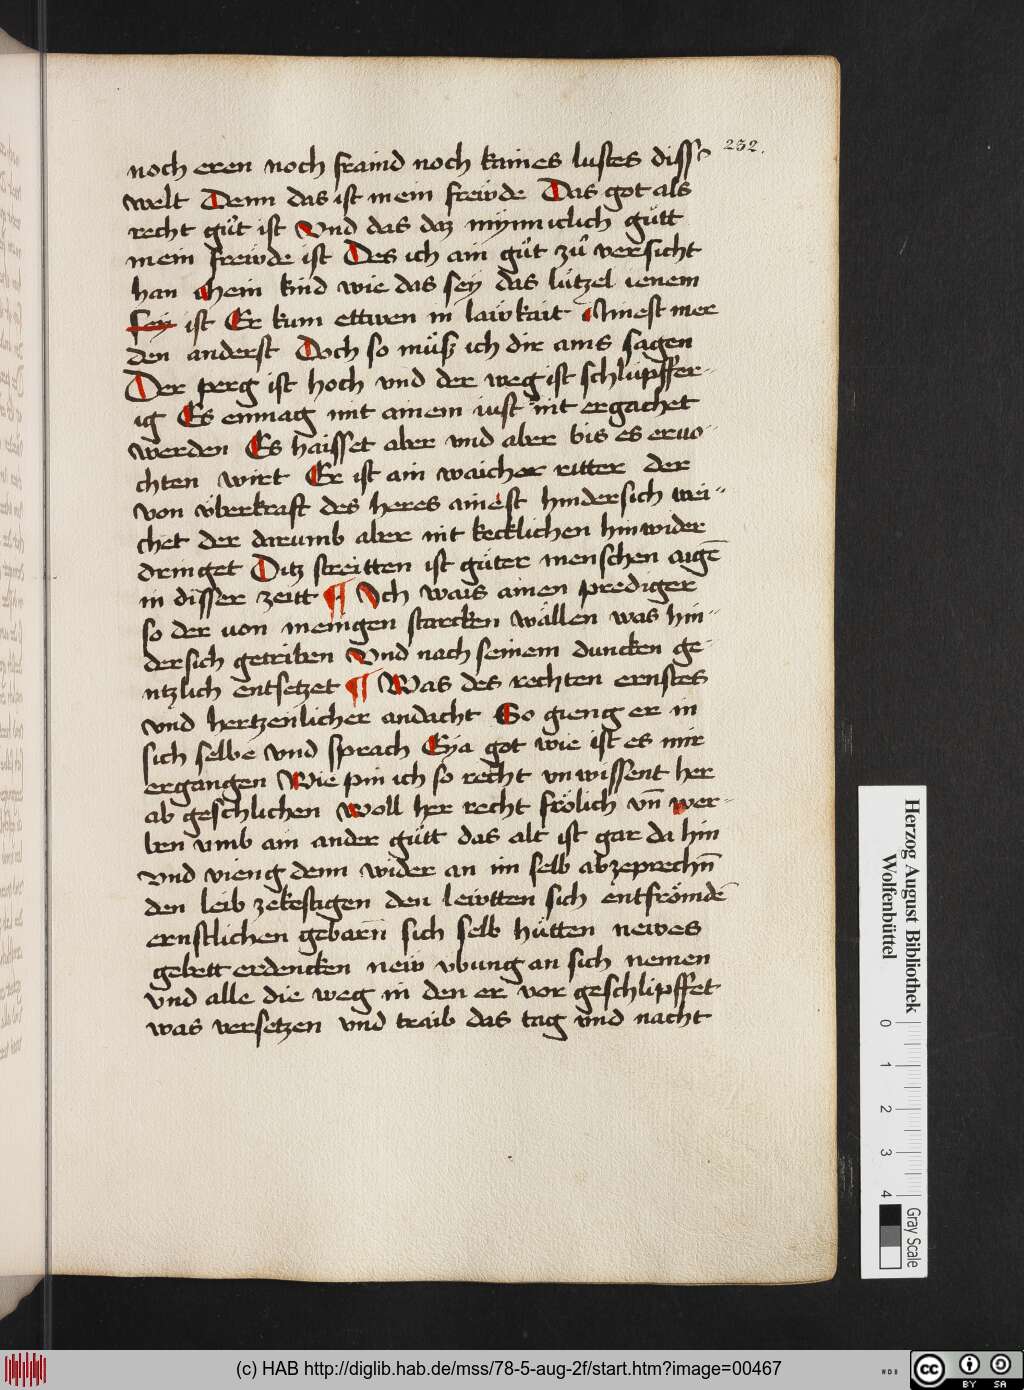 noch eren noch fraind noch kaines lustes diss
252.
welt Denn das ist mein freẅde Das got als
recht gůt ist Vnd das daz mynniclich gütt
mein freẅde ist Des ich ain gůt zů versicht
han Mein kind wie das sey das lützel ienem
sey ist Er kum ettwen in laẅkait Minest mer
den anderst Doch so müß ich dir ains sagen
Der perg ist hoch vnd der weg ist schlüpffer-
ig Es enmag mit ainem iust nit ergachet
werden Es haisset aber vnd aber bis es eruo-
chten wirt Er ist ain waicher ritter der
von vberkraft des heres ainest hindersich wei-
chet der darumb aber nit kecklichen hinwider
dringet Ditz streitten ist güter menschen aigē
in disser zeitt ¶ Ich wais ainen prediger
so der von menigen starcken wällen was hin-
dersich getriben Vnd nach seinem duncken ge-
ntzlich entsetzet ¶ Was des rechten ernstes
vnd hertzenlicher andacht So gieng er in
sich selbe vnd sprach Eya got wie ist es mir
ergangen Wie pin ich so recht vnwissent her
ab geschlichen Woll her recht frölich vn̄ wer-
ben vmb ain ander gütt das alt ist gar da hin
vnd vieng denn wider an im selb abzeprechn̄
den leib zekestigen den leẅtten sich entfrömdē
ernstlichen gebarn̄ sich selb hütten newes
gebett erdencken new vbung an sich nemen
vnd alle die weg in den er vor geschlipffet
was versetzen vnd traib das tag vnd nacht
Herzog August Bibliothek
Wolfenbüttel
0 1 2 3 4
Gray Scale
(c) HAB http://diglib.hab.de/mss/78-5-aug-2f/start.htm?image=00467
cc BY SA